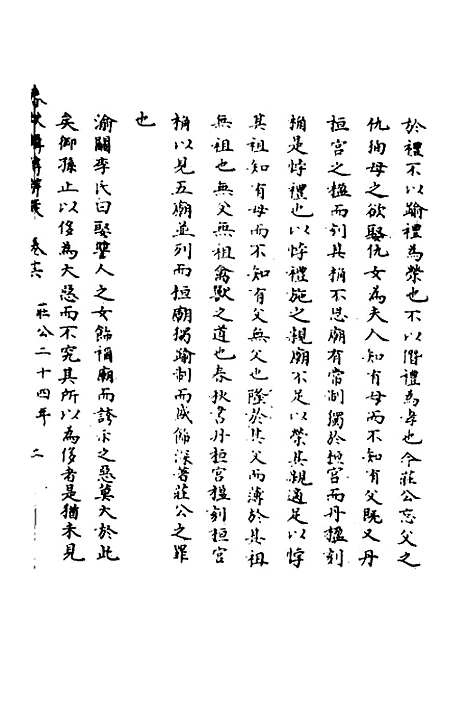 於禮不以踰禮為榮也不以僭禮為孝也今莊公忘父之
仇狥母之欲娶仇女為夫人知有母而不知有父既又丹
桓宮之楹而刻其桷不思廟有常制獨於桓宮而丹楹刻
桷是悖禮也以悖禮施之親廟不足以榮其親適足以悖
其祖知有母而不知有父無父也隆於其父而薄於其祖
無祖也無父無祖禽獸之道也春秋書丹桓宮楹刻桓宮
桷以見五廟並列而桓廟獨踰制而盛飾深著莊公之罪
也
渝關李氏曰娶讐人之女飾禰廟而誇示之惡莫大於此
矣御孫止以侈為大惡而不究其所以為侈者是猶未見
卷十六 莊公二十四年 二